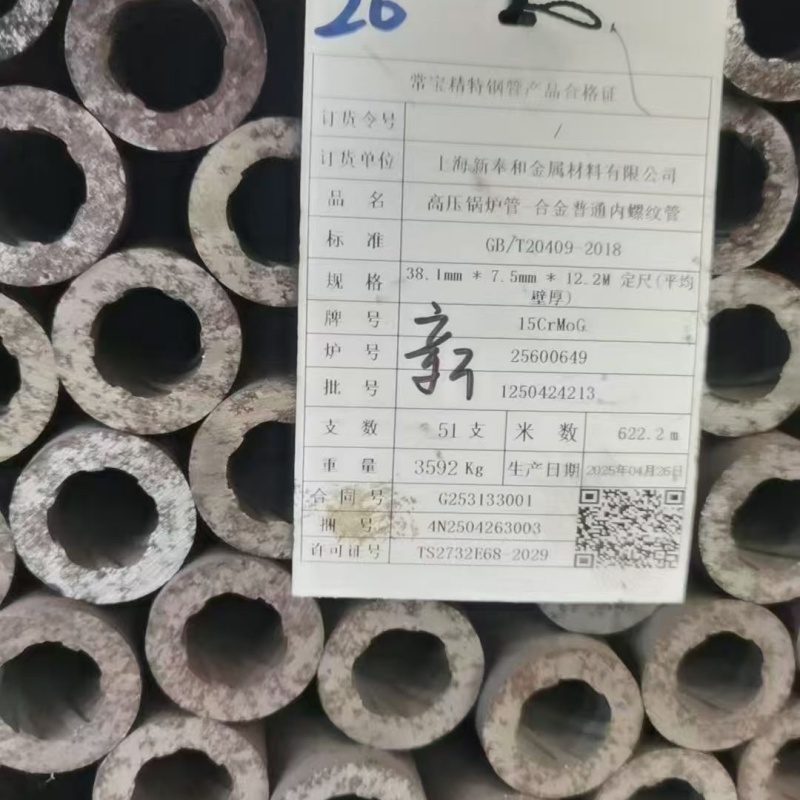 26
常宝精特钢管产品合格证
订货令号 /
订货单位 上海新奉和金属材料有限公司
品 名 高压锅炉管-合金普通内螺纹管
标 准 GB/T20409-2018
规 格 38.1mm * 7.5mm * 12.2M 定尺(平均
壁厚)
牌 号 15CrMoG
新
炉 号 25600649
批 号 1250424213
支 数 51 支 米 数 622.2 m
重 量 3592 Kg 生产日期 2025年04月26日
合 同 号 G253133001
捆 号 4N2504263003
许可证号 TS2732E68-2029